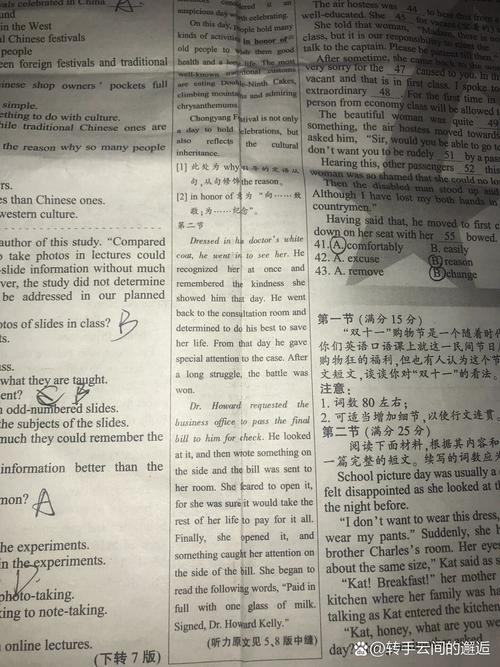 vals celebrated in China
und
in the West
l Chinese festivals
people
een foreign festivals and traditional
inese shop owners' pockets full
simple.
ething to do with culture.
hile traditional Chinese ones are
the reason why so many people
rs.
es than Chinese ones.
western culture.
author of this study. "Compared
o take photos in lectures could
-slide information without much
ver, the study did not determine
be addressed in our planned
otos of slides in class?
B
ts.
ass.
what they are taught.
ent?
B
n odd-numbered slides.
the subjects of the slides.
much they could remember the
information better than the
mon?
A
he experiments.
in the experiments.
photo-taking.
king to note-taking.
n online lectures.
(下转 7 版)
considered it an
auspicious day worth celebrating.
On this day, people hold many
kinds of activities in honor of
old people to wish them good
health and a long life. The most
well-known traditional customs
are eating Double-Ninth Cakes,
climbing mountains and admiring
chrysanthemums.
Chongyang Festival is not only
a day to hold celebrations, but
also reflects the cultural
inheritance.
[1] 此处为 why 引导的定语从
句,从句修饰 the reason。
[2] in honor of 意为 "向……致
敬;为……纪念"。
第二节
Dressed in his doctor's white
coat, he went in to see her. He
recognized her at once and
remembered the kindness she
showed him that day. He went
back to the consultation room and
determined to do his best to save
her life. From that day he gave
special attention to the case. After
a long struggle, the battle was
won.
Dr. Howard requested the
business office to pass the final
bill to him for check. He looked
at it, and then wrote something on
the side and the bill was sent to
her room. She feared to open it,
for she was sure it would take the
rest of her life to pay for it all.
Finally, she opened it, and
something caught her attention on
the side of the bill. She began to
read the following words, "Paid in
full with one glass of milk.
Signed, Dr. Howard Kelly."
(听力原文见 5、8 版中缝)
The air hostess was 44 to
well-educated. She 45
She told the woman, "Madam, there is
class, but it is our responsibility to meet the
talk to the captain. Please be patient till then."
After sometime, she came back to
very sorry for the 47 caused to you. In th
vacant and that is in first class. I spoke to
extraordinary 48 . For the first time i
person from economy class will be allowed t
The beautiful woman was quite 49
something, the air hostess moved towards
asked him, "Sir, would you be able to go t
don't want you to be rudely 51 by a pas
Hearing this, other passengers 52 this
woman was so shamed that she could no lo
Then the disabled man stood up a
Although I have lost my both hands in
countrymen."
Having said that, he moved to first c
down on her seat with her 55 bowed.
41. A. comfortably B. easily
42. A. excuse B. reason
43. A. remove B. change
第一节 (满分 15 分)
"双十一"购物节是一个随着时代
你们英语口语课上就这一民间节日
购物狂的福利,但也有人认为这个节
文短文,谈谈你对"双十一"的看法。
注意:
1. 词数 80 左右;
2. 可适当增加细节,以使行文连贯。
第二节 (满分 25 分)
阅读下面材料,根据其内容和
一篇完整的短文。续写的词数应为
School picture day was usually a d
felt disappointed as she looked at th
the night before.
"I don't want to wear this dress,
wear my pants." Suddenly, she h
brother Charles's room. Her eyes
about the same size," Kat said as s
"Kat! Breakfast!" her mother
kitchen where her family was ha
talking as Kat entered the kitchen
"Kat, honey, are you we
day?
@转手云间的邂逅